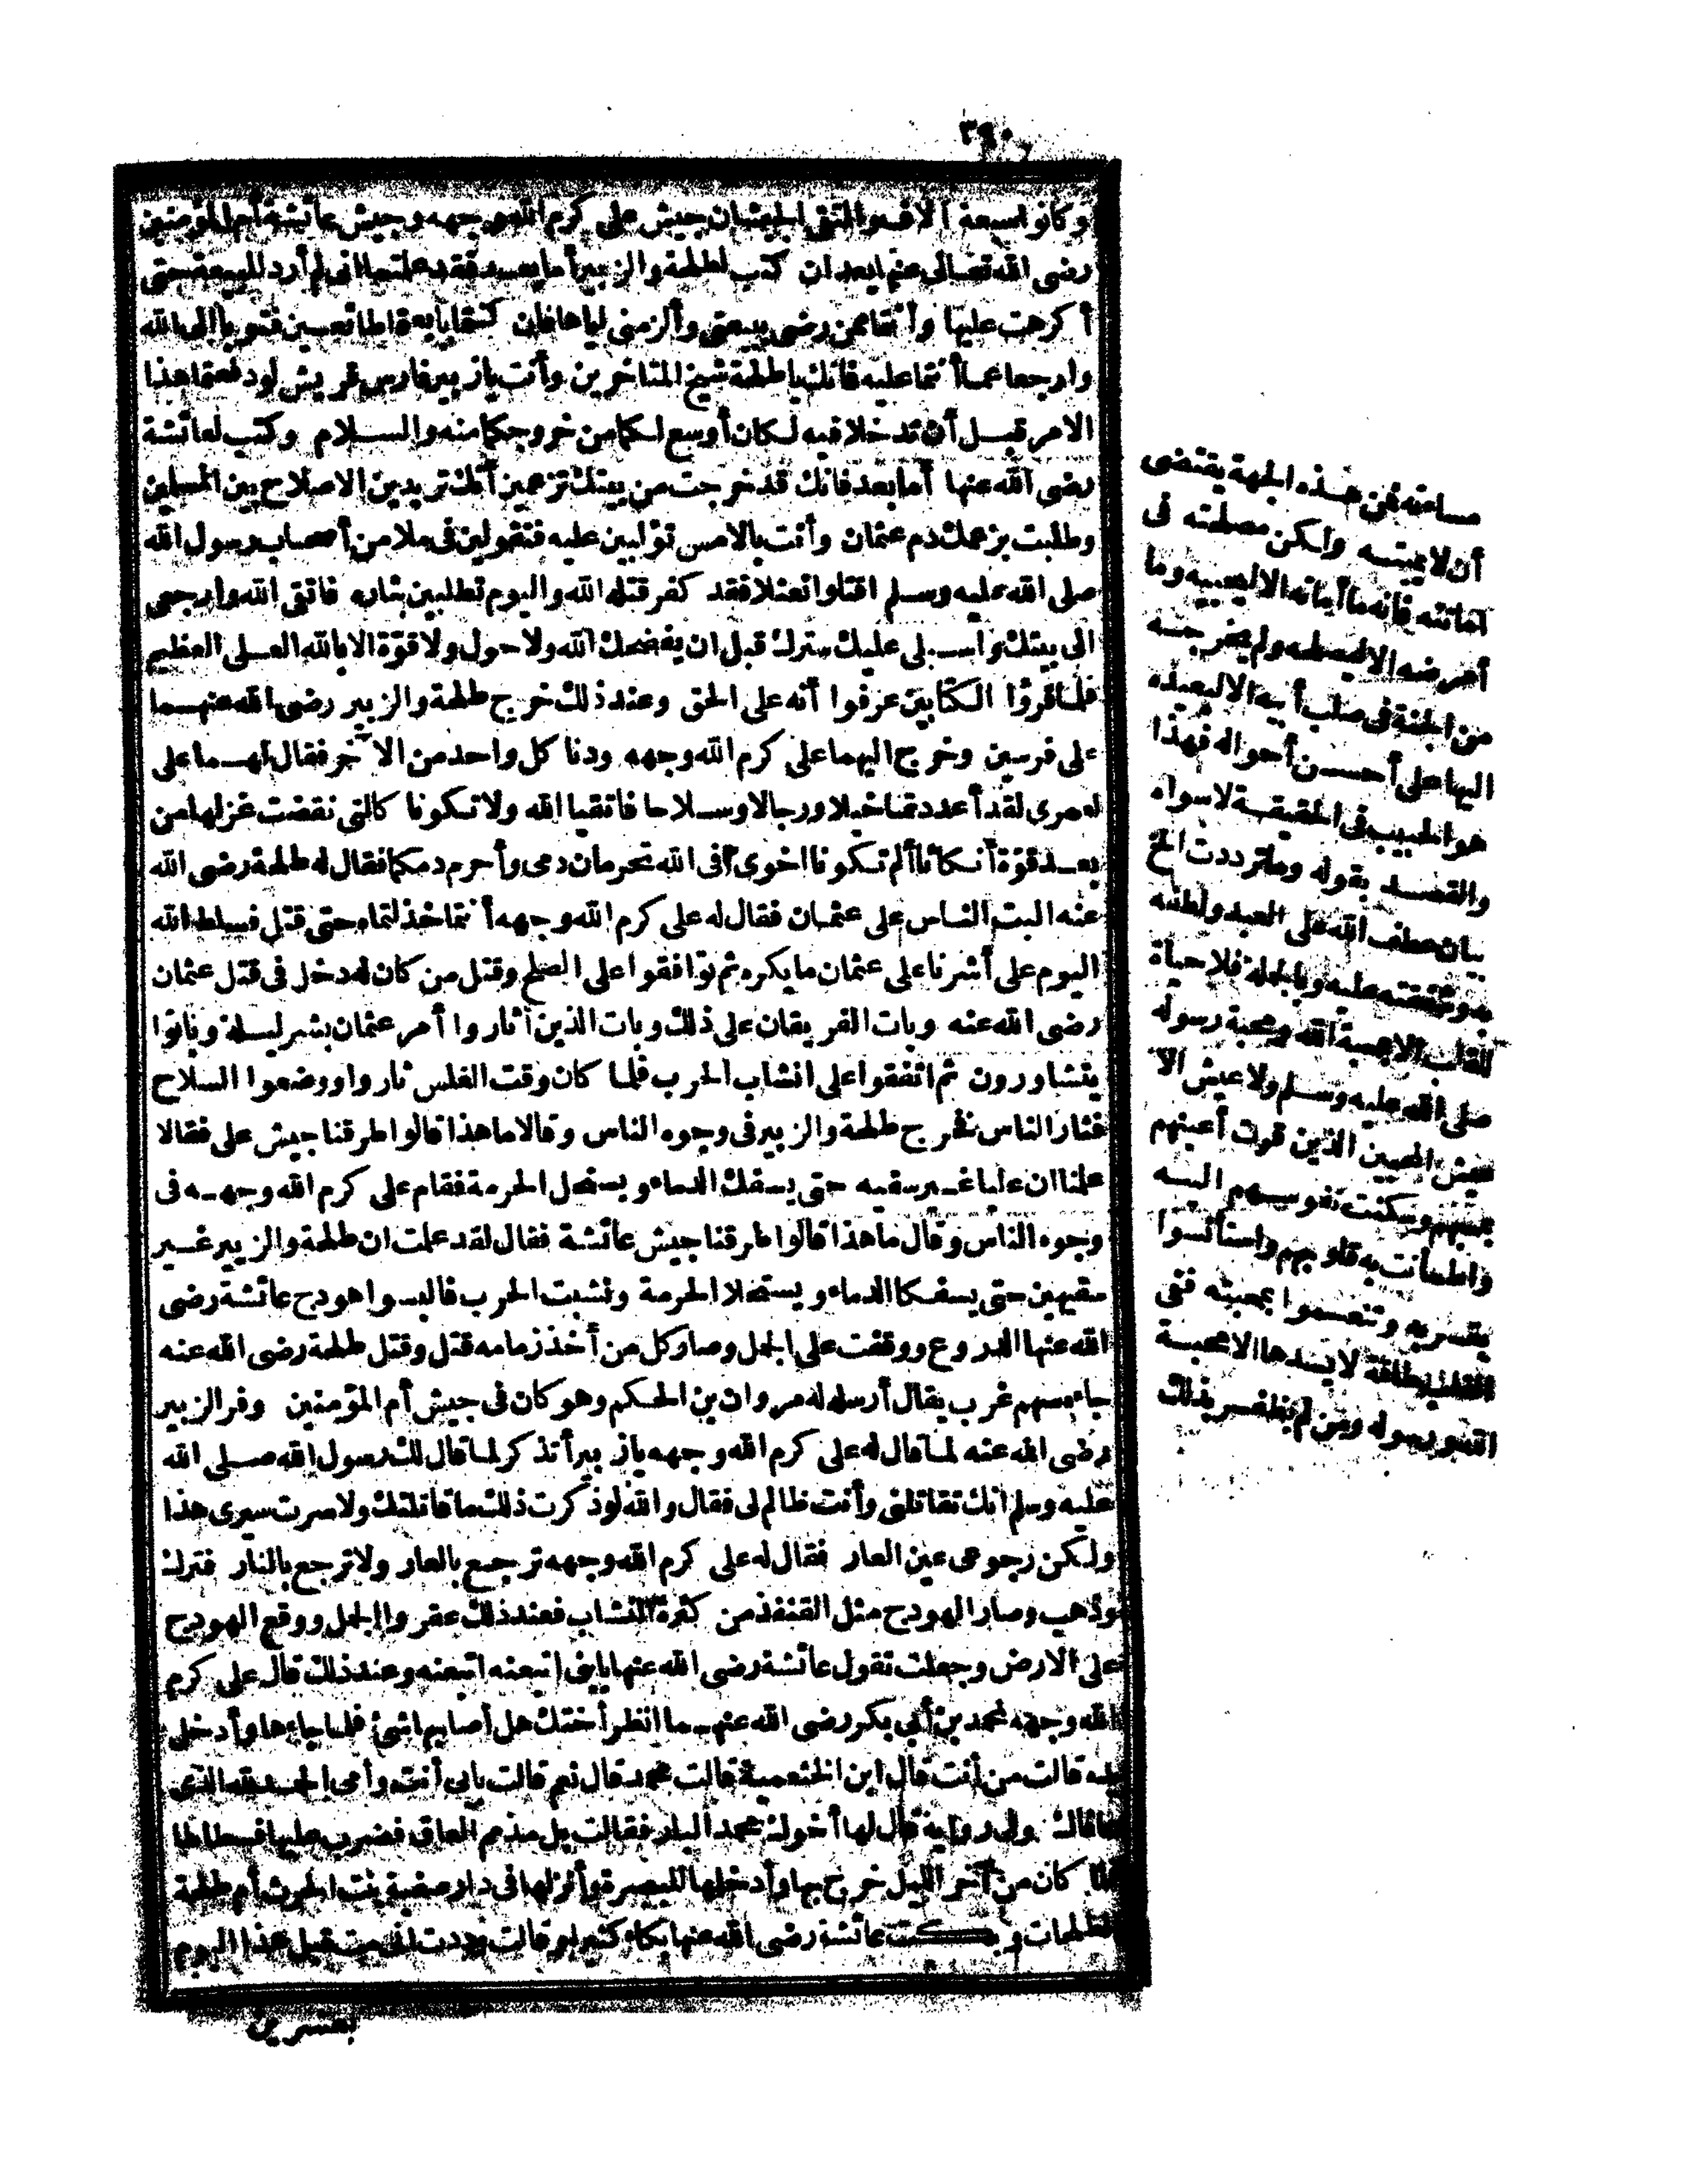 ٣٩٠
وكانوا سبعة آلاف والتقى الجيشان جيش على كرم الله وجهه وجيش عائشة أم المؤمنين
رضى الله تعالى عنها بعد ان كتب لطلحة والزبير أما بعد فقد علمتما انى لم أرد للبيعة حتى
أكرهت عليها وأنتما ممن رضى ببيعتى وألزمنى اياها فان كنتما بايعتما طائعين فتوبا الى الله
وارجعا عما أنتما عليه فانك يا طلحة شيخ المتاخرين وأنت يازبير فارس قريش لو دفعتما هذا
الامر قبل أن تدخلا فيه لكان أوسع لكما من خروجكما منه والسلام وكتب لعائشة
رضى الله عنها أما بعد فانك قد خرجت من بيتك تزعمين أنك تريدين الاصلاح بين المسلمين
وطلبت بزعمك دم عثمان وأنت بالامس تؤلبين عليه فتقولين فى ملا من أصحاب رسول الله
صلى الله عليه وسلم اقتلوا نعثلا فقد كفر قتله الله واليوم تطلبين بثاره فاتقى الله وارجعى
الى بيتك واسبلى عليك سترك قبل ان يفضحك الله ولا حول ولا قوّة الا بالله العلى العظيم
فلما قرؤا الكتابين عرفوا أنه على الحق وعند ذلك خرج طلحة والزبير رضى الله عنهما
على فرسين وخرج اليهما على كرم الله وجهه ودنا كل واحد من الآخر فقال لهما على
لعمرى لقد أعددتما خيلا ورجالا وسلاحا فاتقيا الله ولا تكونا كالتى نقضت غزلها من
بعد قوّة أنكاثا ألم تكونا اخوىّ فى الله تحرمان دمى وأحرم دمكما فقال له طلحة رضى الله
عنه البت الناس على عثمان فقال له على كرم الله وجهه أنتما خذلتماه حتى قتل فسلط الله
اليوم على أشرنا على عثمان ما يكره ثم توافقوا على الصلح وقتل من كان له دخل فى قتل عثمان
رضى الله عنه وبات الفريقان على ذلك وبات الذين أثاروا أمر عثمان بشر ليلة وباتوا
يتشاورون ثم اتفقوا على انشاب الحرب فلما كان وقت الغلس ثاروا ووضعوا السلاح
فثار الناس فخرج طلحة والزبير فى وجوه الناس وقالا ما هذا قالوا طرقنا جيش على فقالا
علمنا ان عليا غير سفيه حتى يسفك الدماء ويستحل الحرمة فقام على كرم الله وجهه فى
وجوه الناس وقال ما هذا قالوا طرقنا جيش عائشة فقال لقد علمت ان طلحة والزبير غير
سفيهين حتى يسفكا الدماء ويستحلا الحرمة ونشبت الحرب فالبسوا هودج عائشة رضى
الله عنها الدروع ووقفت على الجمل وصار كل من أخذ زمامه قتل وقتل طلحة رضى الله عنه
جاءه سهم غرب يقال أرسله له مروان بن الحكم وهو كان فى جيش أم المؤمنين وفر الزبير
رضى الله عنه لما قال له على كرم الله وجهه يازبير أتذكر لما قال لك رسول الله صلى الله
عليه وسلم انك تقاتلنى وأنت ظالم لى فقال والله لو ذكرت ذلك ما قاتلتك ولا سرت سيرى هذا
ولكن رجوعى عين العار فقال له على كرم الله وجهه ترجع بالعار ولا ترجع بالنار فترك
وذهب وصار الهودج مثل القنفذ من كثرة النشاب فعند ذلك عقروا الجمل ووقع الهودج
على الارض وجعلت تقول عائشة رضى الله عنها يابنى اتبعنه اتبعنه وعند ذلك قال على كرم
الله وجهه لمحمد بن أبى بكر رضى الله عنهما انظر أختك هل أصابها شئ فلما جاءها وأدخل
يده قالت من أنت قال ابن الخثعمية قالت محمد قال نعم قالت بابى أنت وأمى الحمد لله الذى
عافاك وفى رواية قال لها أخوك محمد البار فقالت بل مذمم العاق فضرب عليها فسطاطا
فلما كان من آخر الليل خرج بها وأدخلها البصرة وأنزلها فى دار صفية بنت الحرث أم طلحة
الطلحات وبكت عائشة رضى الله عنها بكاء كثيرا وقالت وددت انى مت قبل هذا اليوم
بعشرين
مساءته فمن هذه الجهة يقتضى
أن لا يميته ولكن مصلحته فى
اماتته فانه ما أماته الا ليحييه وما
أمرضه الا ليصحه ولم يخرجه
من الجنة فى صلب أبيه الا ليعيده
اليها على أحسن أحواله فهذا
هو الحبيب فى الحقيقة لا سواه
والقصد بقوله وما ترددت الخ
بيان عطف الله على العبد ولطفه
به وشفقته عليه وبالجملة فلا حياة
للقلب الا بمحبة الله ومحبة رسوله
صلى الله عليه وسلم ولا عيش الا
عيش المحبين الذين قرت أعينهم
بحبيبهم وسكنت نفوسهم اليه
واطمأنت به قلوبهم واستأنسوا
بقربه وتنعموا بمحبته ففى
القلب طاقة لا يسدها الا محبة
الله ورسوله ومن لم يظفر بذلك